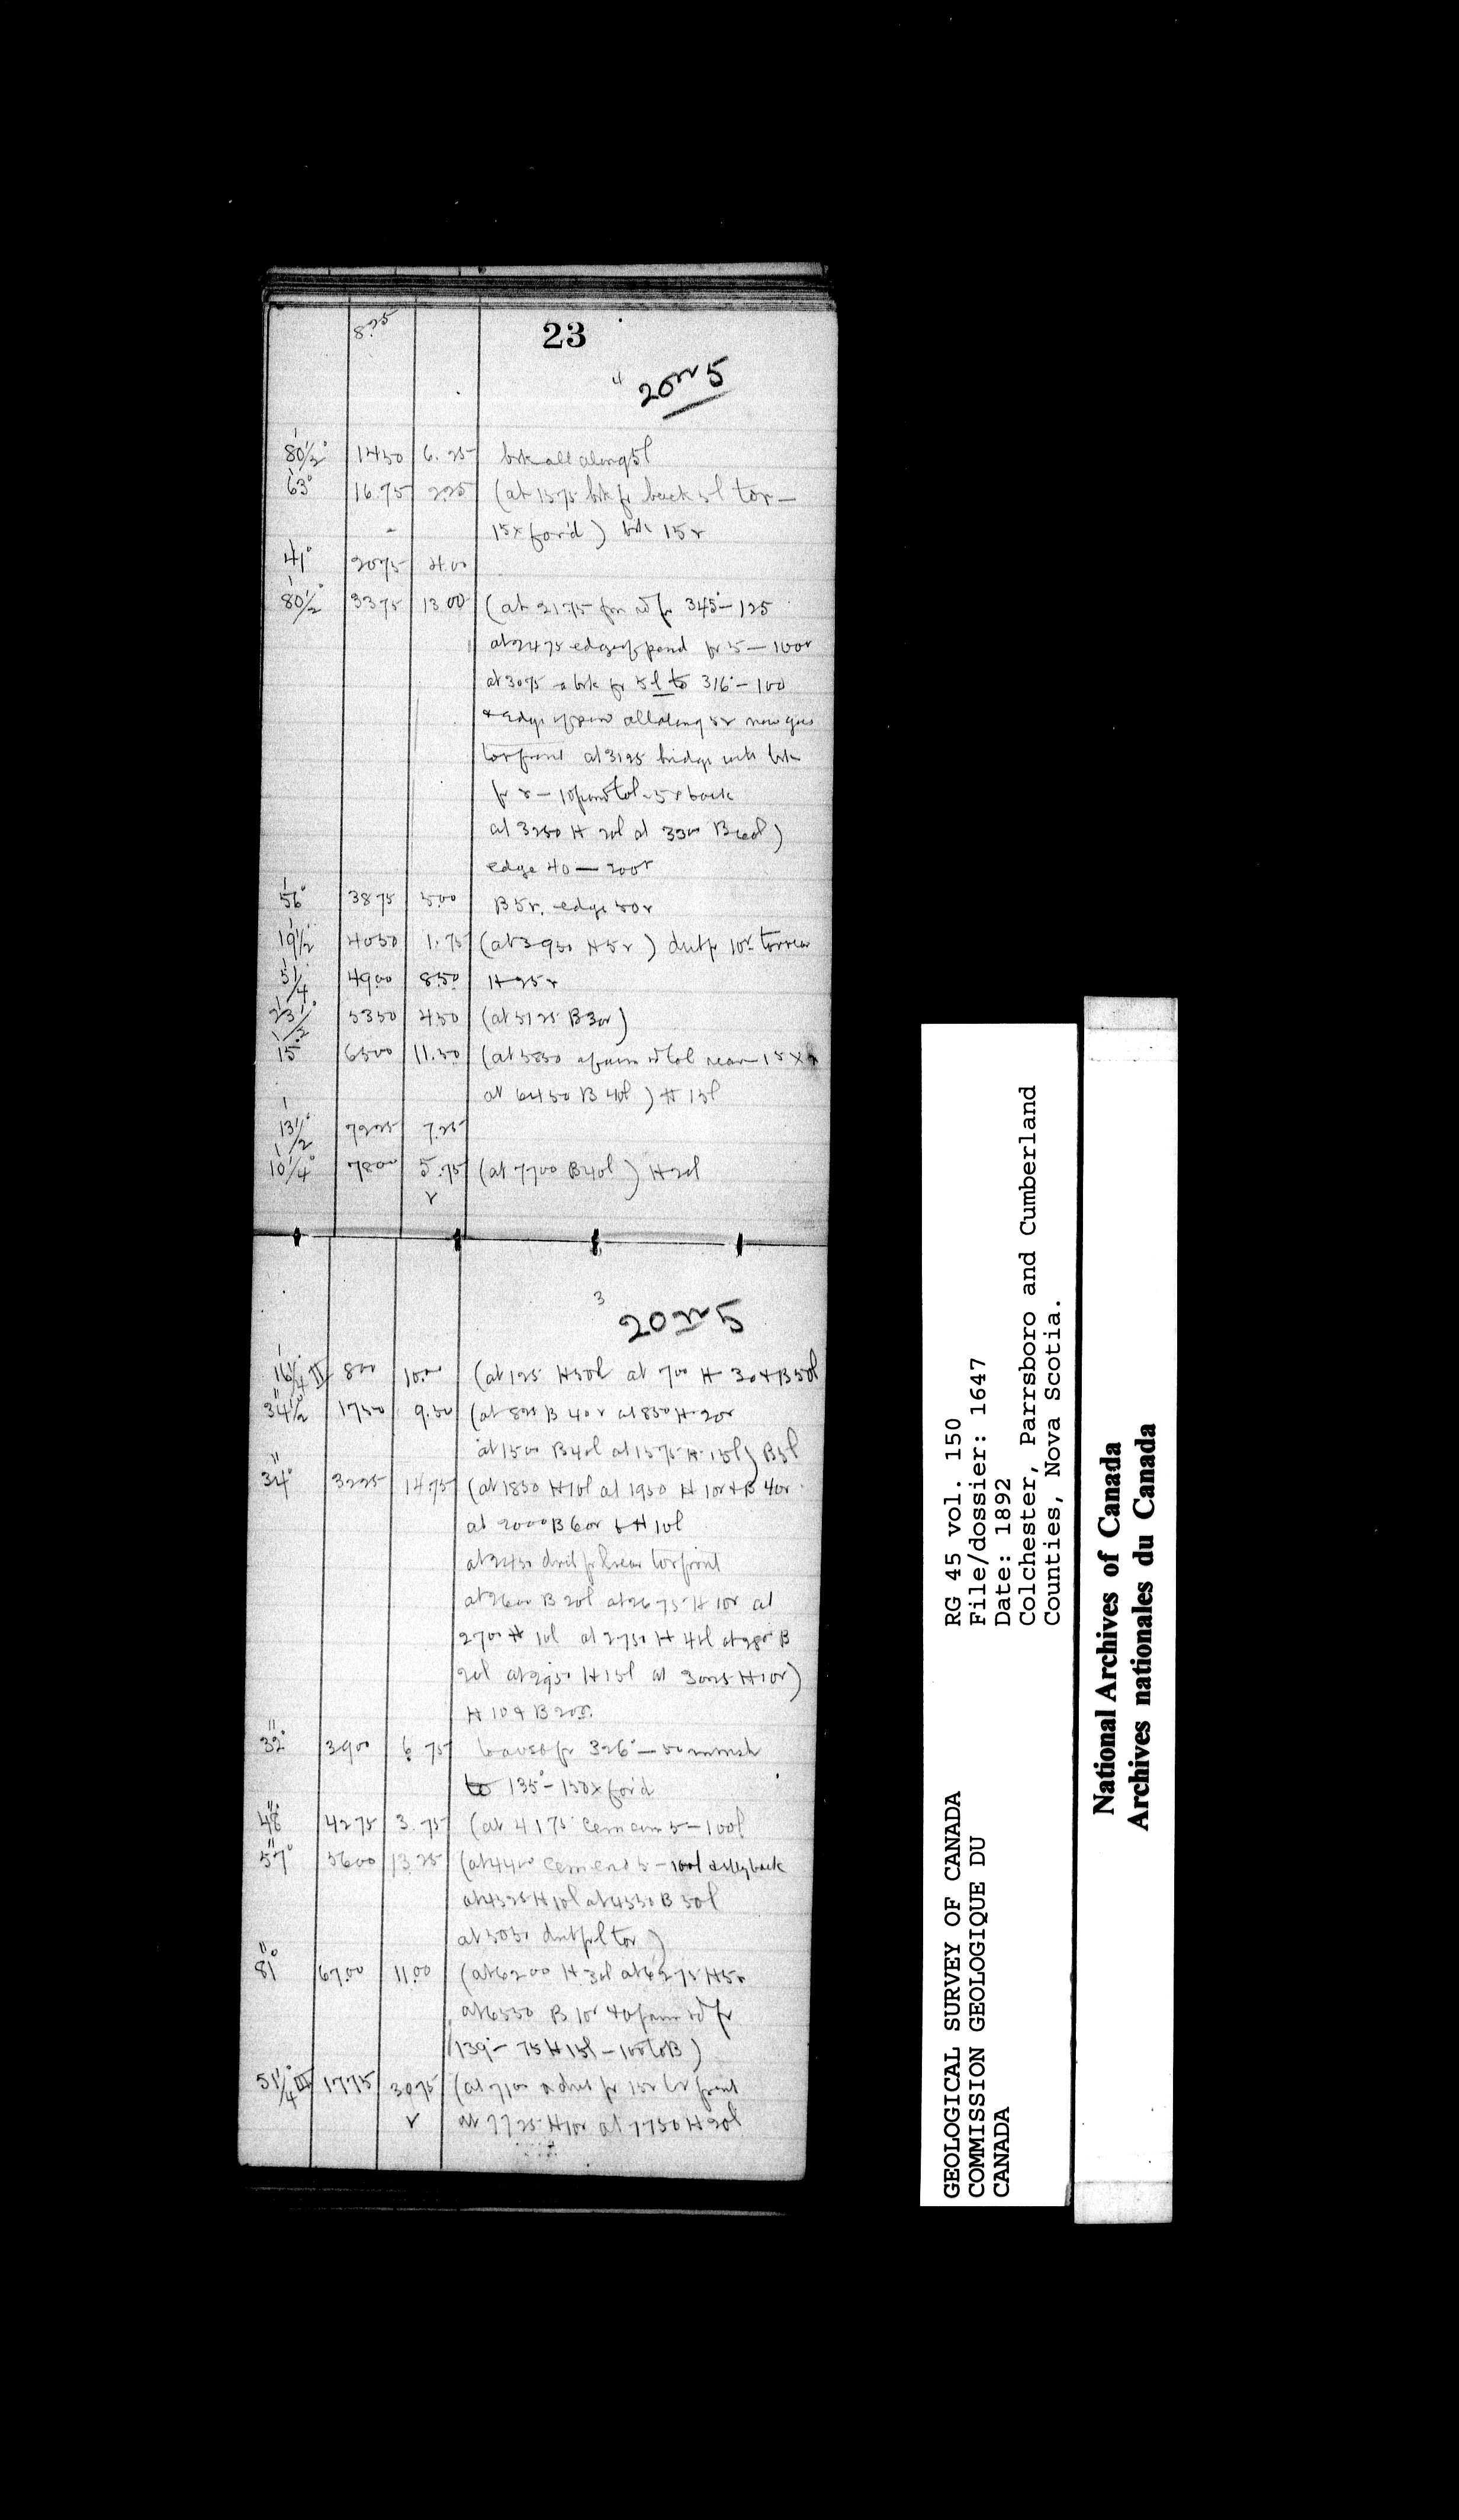 825
23
4 20 r 5
80 1/2° 1450 6.25 brk all along 5l
63° 16.75 225 (at 1575 brk fr back 5l to r—
15 x for'd) brk 15r
41° 2075 4.00
80 1/2° 3375 13.00 (at 2175 fm rd fr 345°—125
at 2475 edge of pond fr 5—100r
at 3075 a brk fr 5l to 316°—100
& edge of pond all along 5r now goes
to r front at 3125 bridge with brk
fr r—10 pond to l
at 3250 H 20l at 3300 B 60l)
edge 40—200r
56° 3875 5.00 B 5r. edge 50r
19 1/2° 4050 1.75 (at 3950 H 5r)
51 1/4 4900 8.50 H 25r
23 1/2° 5350 4.50 (at 5125 B 30r)
15° 6500 11.50 (at 5850 a farm rd to l rear—15 x
at 6450 B 40l) H 15l
13 1/2° 7225 7.25
10 1/4° 7800 5.75 (at 7700 B 40l) H 20l
r
3 20 r 5
16 1/4° II 800 10.00 (at 125 H 50l at 700 H 30 & B 50l
34 1/2° 1750 9.50 (at 825 B 40r at 850 H 20r
at 1500 B 40l at 1575 H 15l) B 5l
34° 3225 14.75 (at 1850 H 10l at 1950 H 10r & B 40r
at 2000 B 60r & H 10l
at 2450 to r front
at 2600 B 20l at 2675 H 10r at
2700 H 10l at 2750 H 40l at 2800 B
20l at 2950 H 15l at 3025 H 10r)
H 10 & B 20r.
32° 3900 6.75 fr 326°—50
to 135°—150 x for'd
48° 4275 3.75 (at 4175 Cem com 5—100l
57° 5600 13.25 (at 4400 Cem end 5—100l back
at 4525 H 10l at 4550 B 50l
at 5050 fr l to r)
81° 6700 11.00 (at 6200 H 30l at 6275 H 5r
at 6550 B 10r & a farm rd fr
139°—75 H 15l—100 to B)
51 1/4° III 1775 30.75 (at 7100 fr 15r to r front
r at 7725 H 10r at 7750 H 20l
GEOLOGICAL SURVEY OF CANADA
COMMISSION GEOLOGIQUE DU
CANADA
RG 45 vol. 150
File/dossier: 1647
Date: 1892
Colchester, Parrsboro and Cumberland
Counties, Nova Scotia.
National Archives of Canada
Archives nationales du Canada